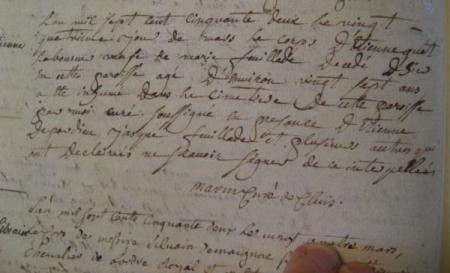 L'an mil sept cent cinquante deux le vingt
quatrieme jour de mars le corps d'Etienne
laboureur de marie feuillade decedé d'hier
en cette paroisse agé d'environ vingt sept ans
a été inhumé dans le cimetiere de cette paroisse
par moi curé soussigné en presance d'Etienne
depardieu jacque feuillade et plusieurs autres qui
ont declarés ne sçavoir signer de ce interpellés
marin curé de
L'an mil sept cents cinquante deux le vingt quatre mars,
de messire silvain
chevalier de l'ordre royal et